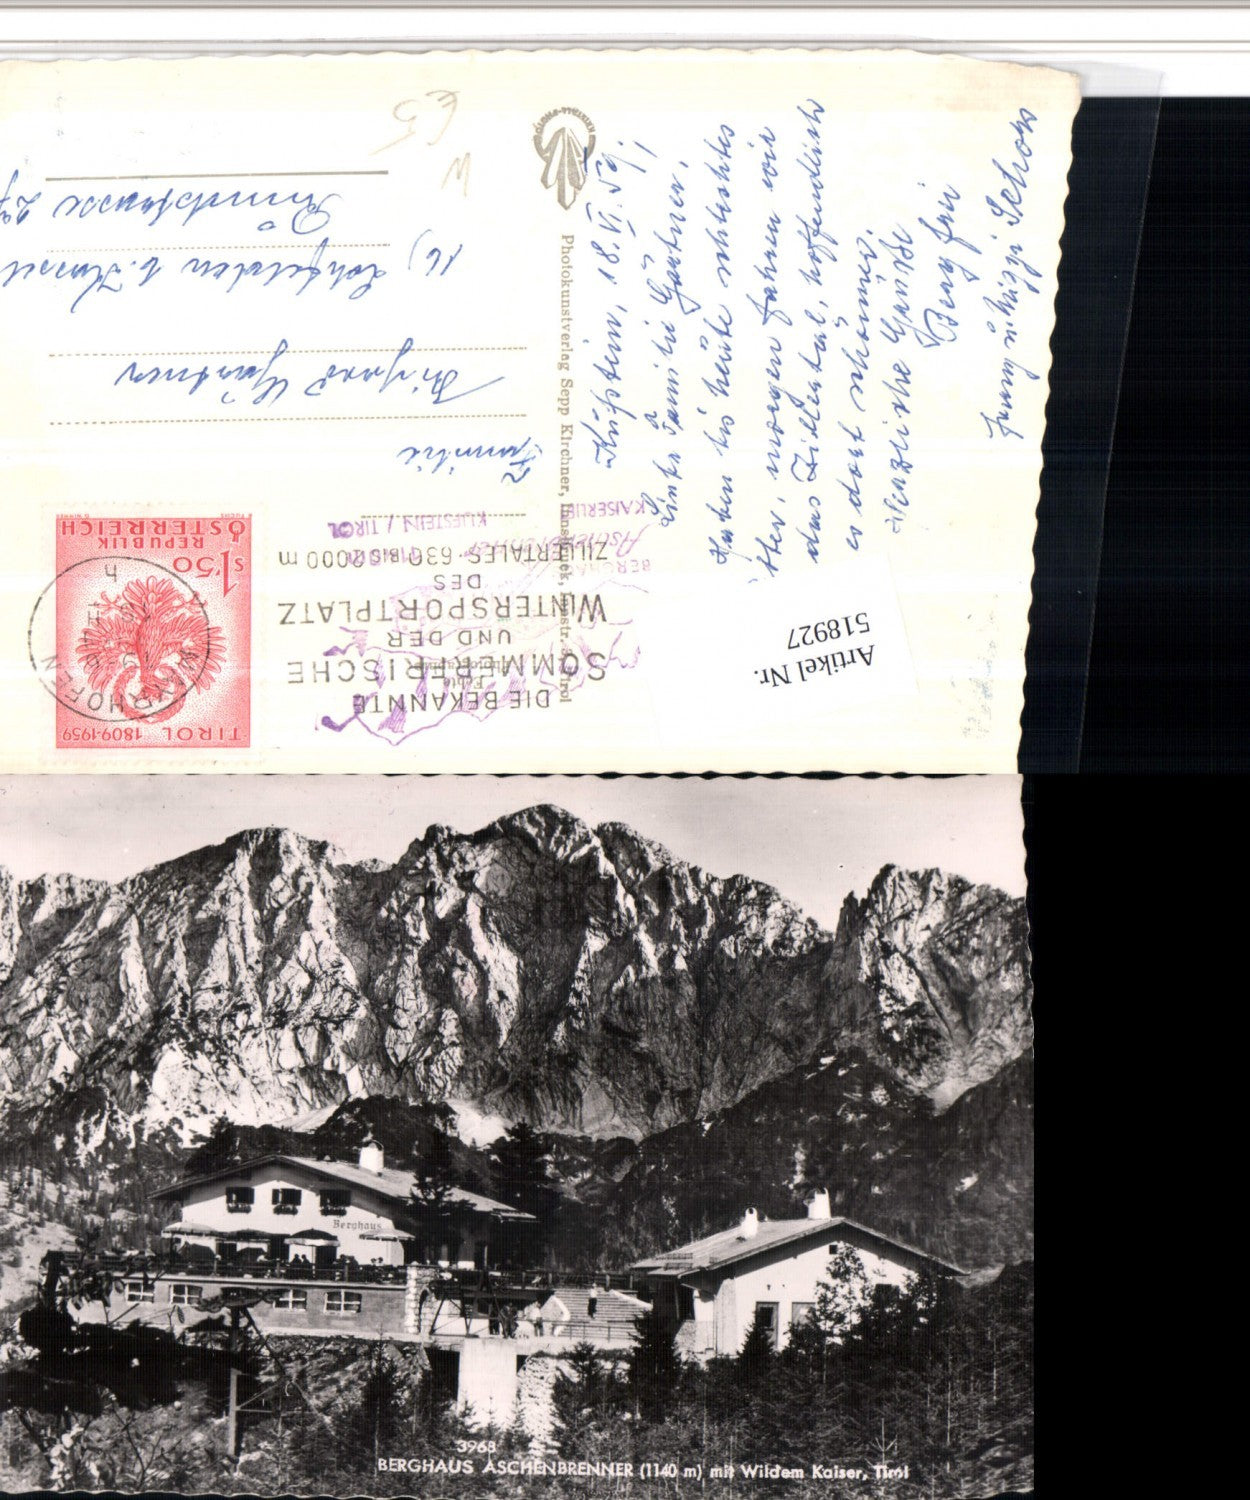 Kufstein, 18. VI. 59.
Liebe Familie Gärtner,
Haben bis heute schlechtes
morgen fahren wir
das Zillertal, hoffentlich
es dort schöner.
Herzliche Grüße
Familie
16)
Photokunstverlag Sepp Kirchner, Innsbruck,
REPUBLIK
ÖSTERREICH
S 1'50
TIROL 1809-1959
MAYRHOFEN
DIE BEKANNTE
SOMMERFRISCHE
UND DER
WINTERSPORTPLATZ
DES
ZILLERTALES 630 BIS 2000 m
KUFSTEIN / TIROL
Artikel Nr.
518927
€5
Berghaus
3968
BERGHAUS ASCHENBRENNER (1140 m) mit Wildem Kaiser, Tirol